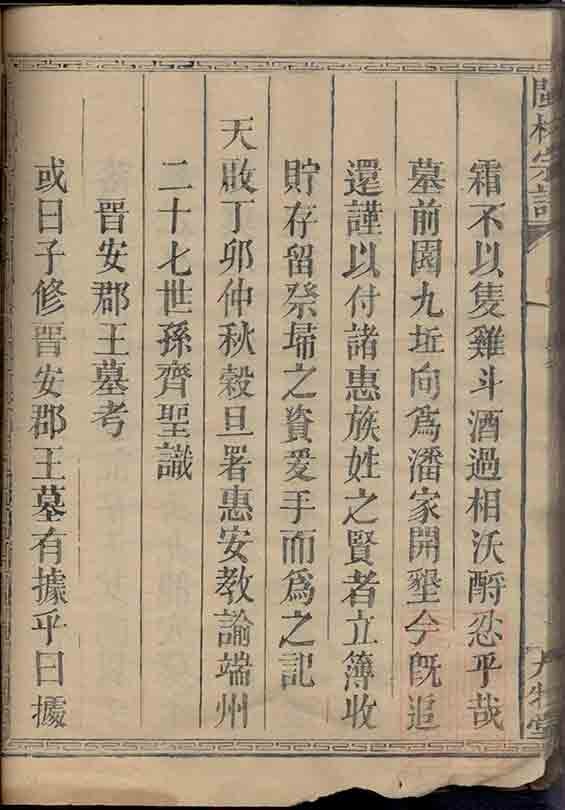 霜不以隻雞斗酒過相沃酹忍乎哉
墓前園九坵向爲潘家開墾今旣追
還謹以付諸惠族姓之賢者立簿收
貯存留祭埽之資爰手而爲之記
天啟丁卯仲秋穀旦署惠安教諭端州
二十七世孫齊聖識
晉安郡王墓考
或曰子修晉安郡王墓有據乎曰據